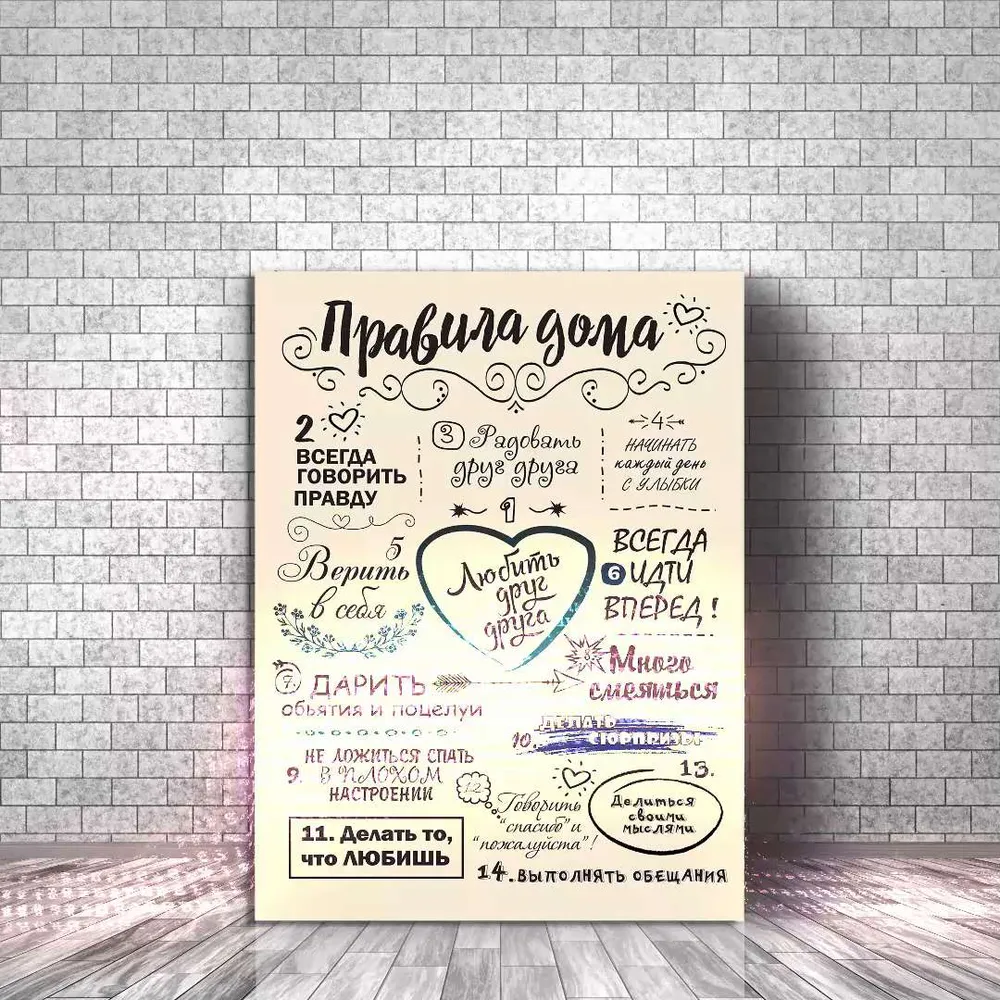 Правила дома
2
ВСЕГДА
ГОВОРИТЬ
ПРАВДУ
3 Радовать
друг друга
4
НАЧИНАТЬ
каждый день
С УЛЫБКИ
1
Любить
друг
друга
5
Верить
в себя
ВСЕГДА
6 ИДТИ
ВПЕРЕД!
7. ДАРИТЬ
обьятия и поцелуи
8
Много
смеяться
9. НЕ ЛОЖИТЬСЯ СПАТЬ
В ПЛОХОМ
НАСТРОЕНИИ
10. ДЕЛАТЬ
СЮРПРИЗЫ
11. Делать то,
что ЛЮБИШЬ
12
Говорить
"спасибо" и
"пожалуйста"!
13.
Делиться
своими
мыслями
14. ВЫПОЛНЯТЬ ОБЕЩАНИЯ